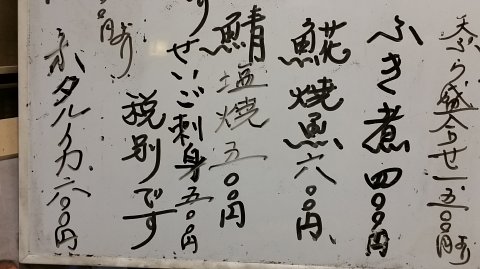 天ぷら盛合せ一五〇〇円より
ふき煮四〇〇円
鯱焼魚六〇〇円
鯖塩焼五〇〇円
せいご刺身五〇〇円
税別です
ホタルイカ六〇〇円